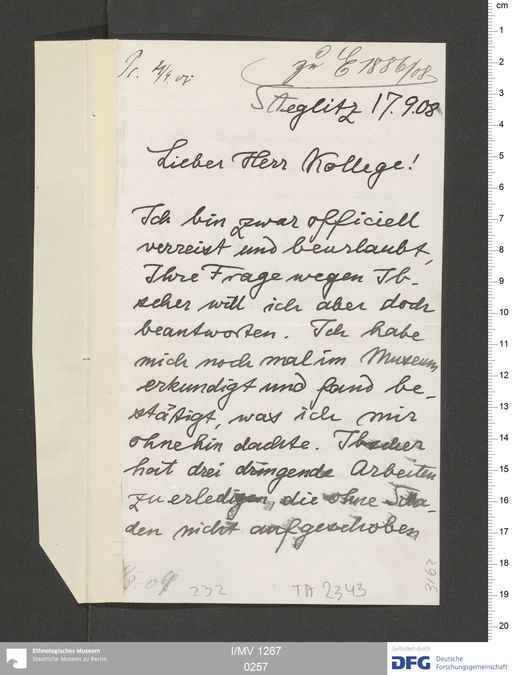 Pr.
zu E 1886/08
Steglitz 17.9.08
Lieber Herr Kollege!
Ich bin zwar officiell
verreist und beurlaubt,
Ihre Frage wegen Ib-
scher will ich aber doch
beantworten. Ich habe
mich noch mal im Museum
erkundigt und fand be-
stätigt, was ich mir
ohnehin dachte. Ibscher
hat drei dringende Arbeiten
zu erledigen, die ohne Scha-
den nicht aufgeschoben
232
TA 2343
cm
1
2
3
4
5
6
7
8
9
10
11
12
13
14
15
16
17
18
19
20
Ethnologisches Museum
Staatliche Museen zu Berlin
I/MV 1267
0257
Gefördert durch
DFG
Deutsche
Forschungsgemeinschaft